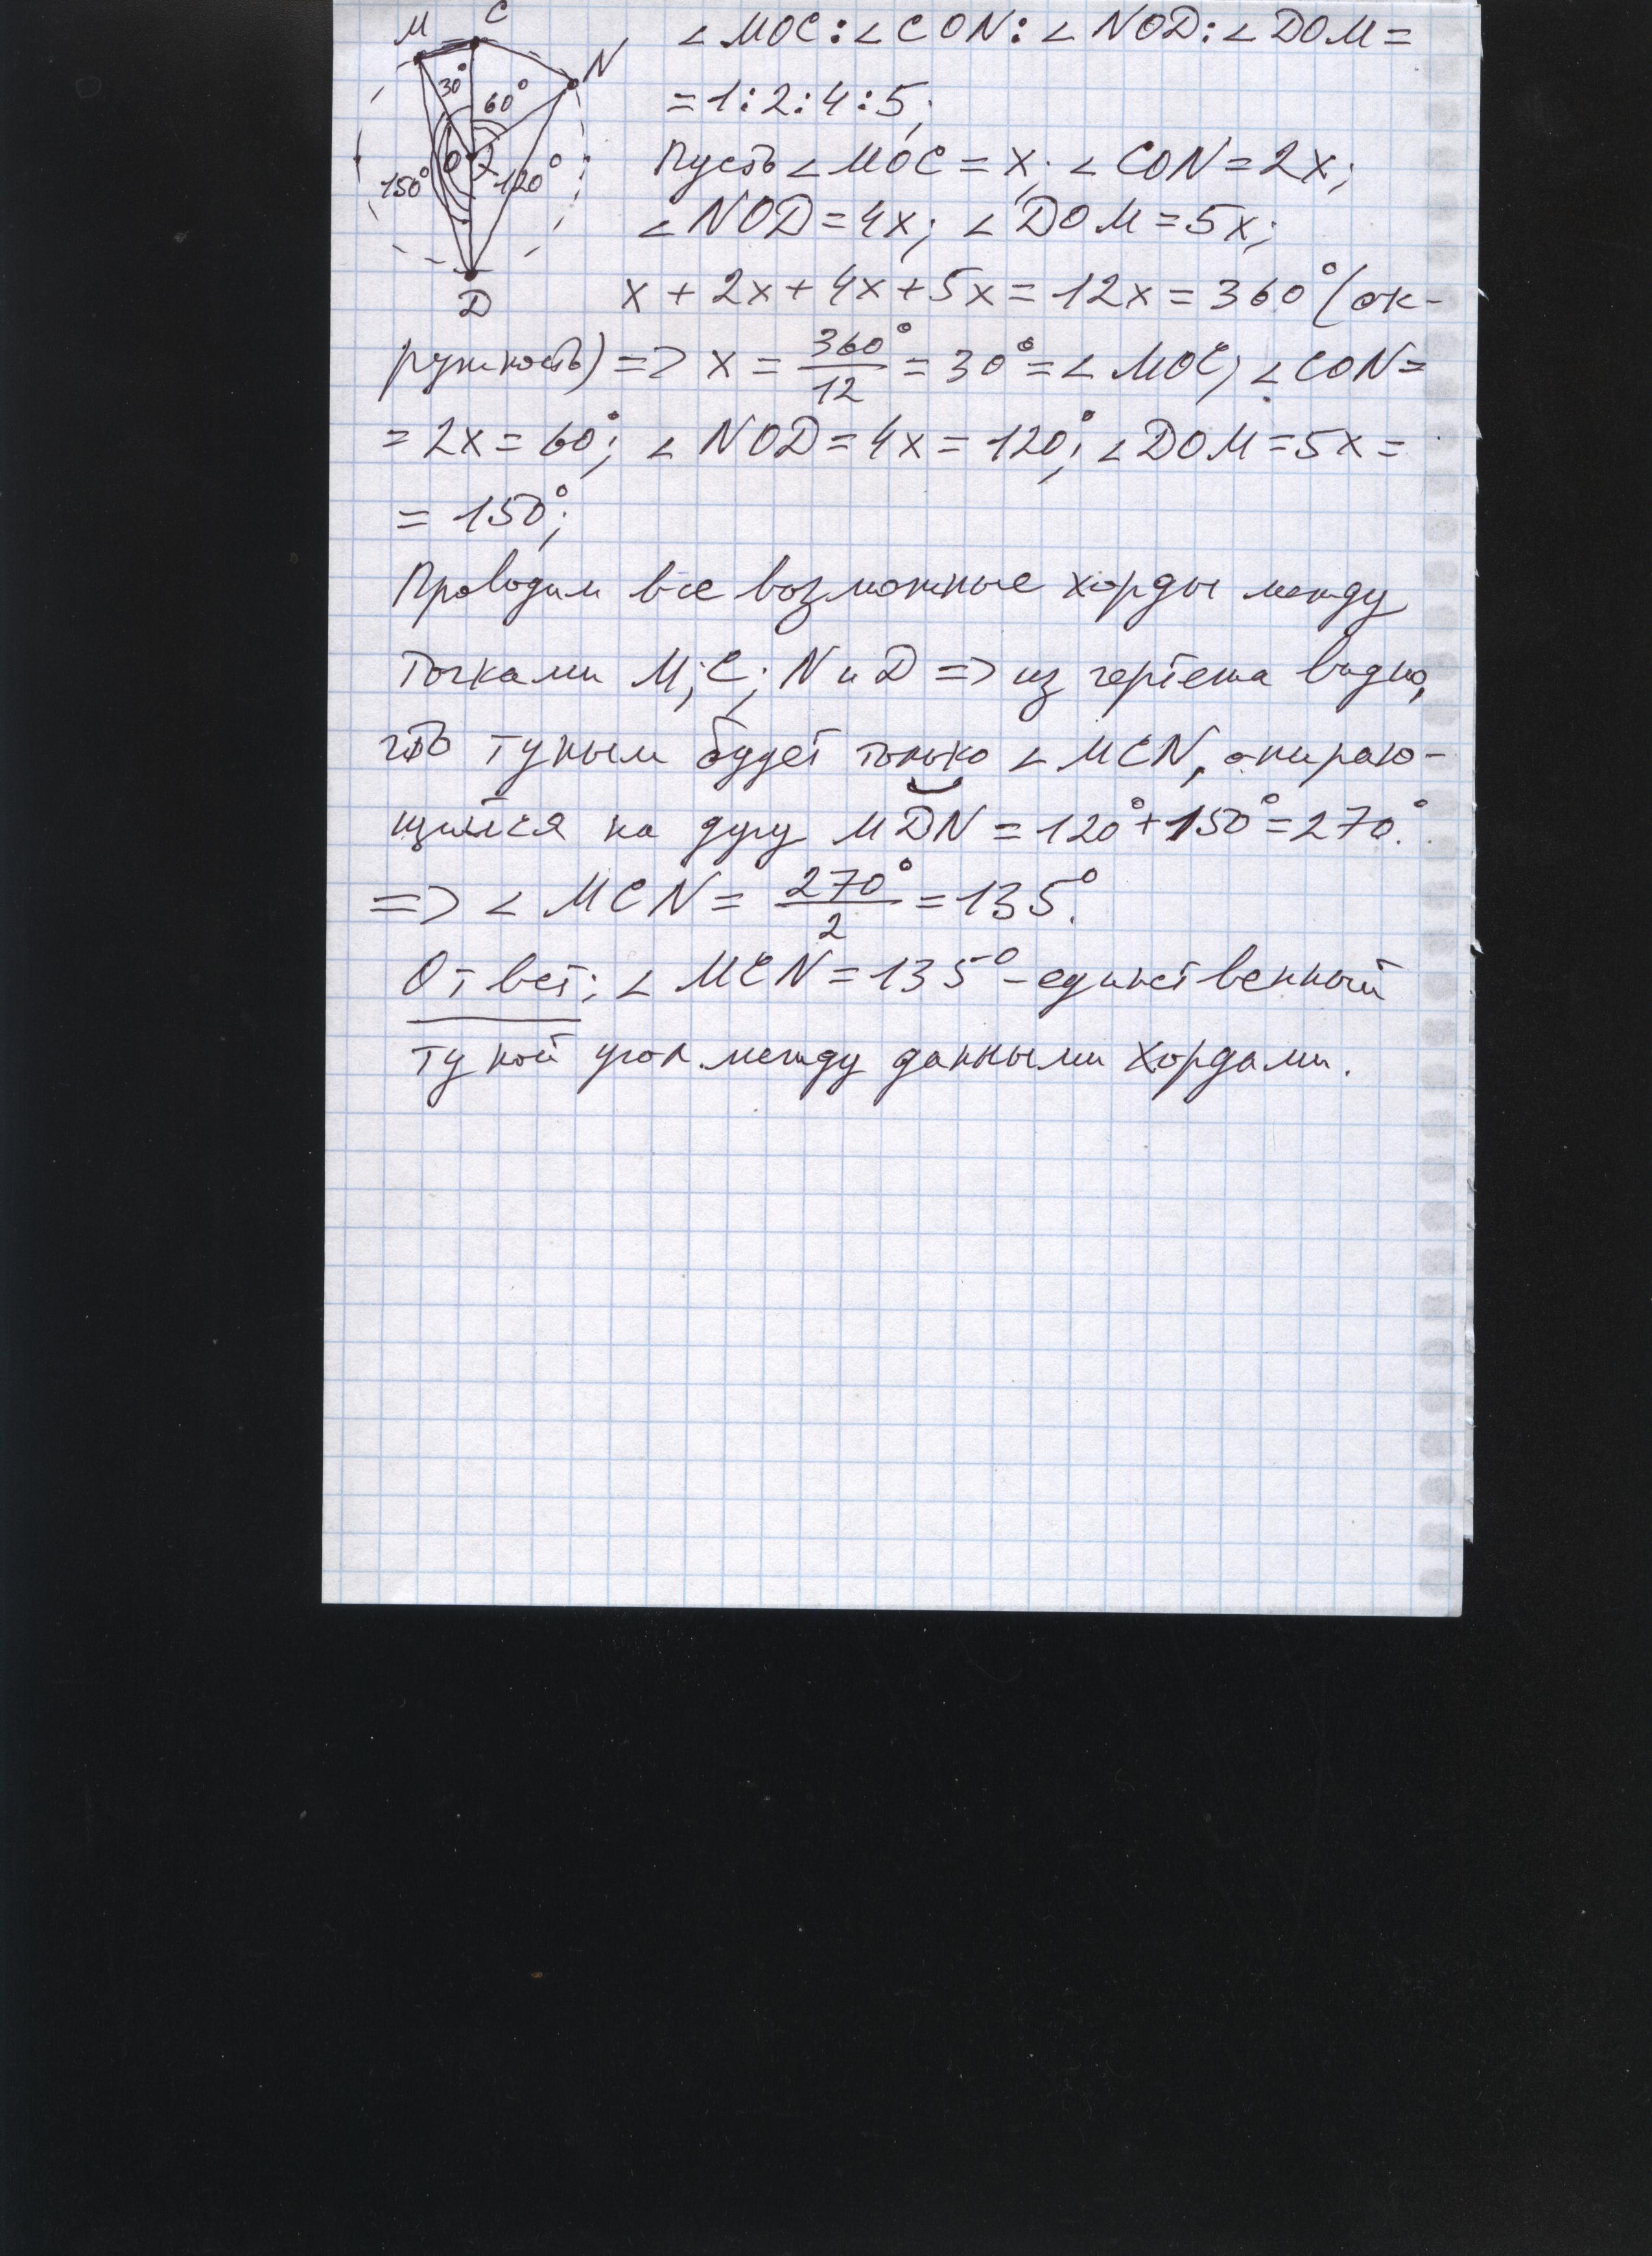 M C
N
30°
60°
O
150° 120°
D
∠MOC:∠CON:∠NOD:∠DOM=
=1:2:4:5;
Пусть ∠MOC=x; ∠CON=2x;
∠NOD=4x; ∠DOM=5x;
x+2x+4x+5x=12x=360° (ок-
ружность) => x = 360°/12 = 30° = ∠MOC; ∠CON=
=2x=60°; ∠NOD=4x=120°; ∠DOM=5x=
=150°;
Проводим все возможные хорды между
точками M; C; N и D => из чертежа видно,
что тупым будет только ∠MCN, опираю-
щийся на дугу MDN=120°+150°=270°.
=> ∠MCN = 270°/2 = 135°.
Ответ: ∠MCN=135° - единственный
тупой угол между данными хордами.